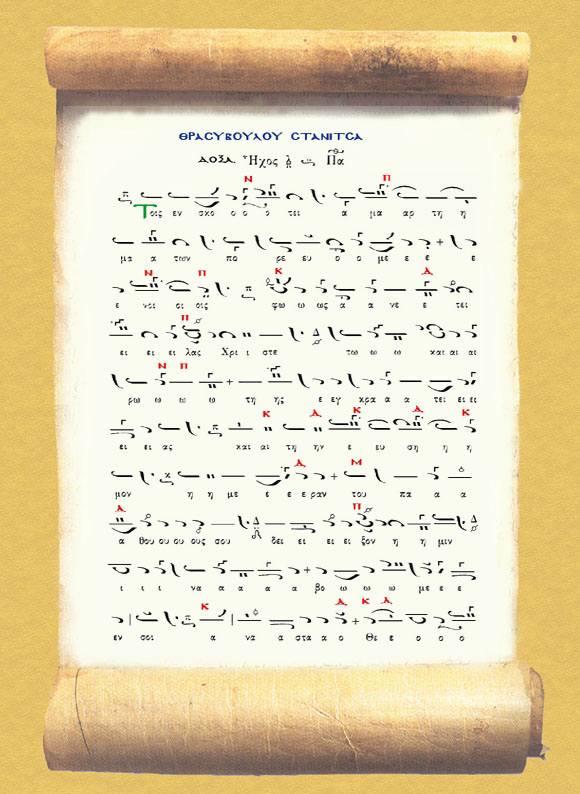 ΘΡΑСΥΒΟΥΛΟΥ СΤΑΝΙΤСΑ
ΔΟΞΑ. Ἦχος Πα
Ν Π
Τοις εν σκο ο ο ο τει α μα αρ τη η
μα α των πο ρε ευ ο ο με ε ε ε
Ν Π Κ Δ
ε νοι οι οις φω ω ως α α νε ε τει
Π
ει ει ει λας Χρι ι στε τω ω ω και αι αι
Ν Π
ρω ω ω ω τη ης ε εγ κρα α α τει ει ει
Κ Δ Κ Δ Κ
ει ει ας και αι τη ην ε ευ ση η η
Δ Μ
μον η η με ε ε ε ραν του πα α α
Δ Π
α θου ου ου ους σου δει ει ει ει ξον η η μιν
ι ι ι να α α α βο ω ω ω με ε ε
Κ Δ Κ Δ
εν σοι α να α στα α ο Θε ε ο ο ο